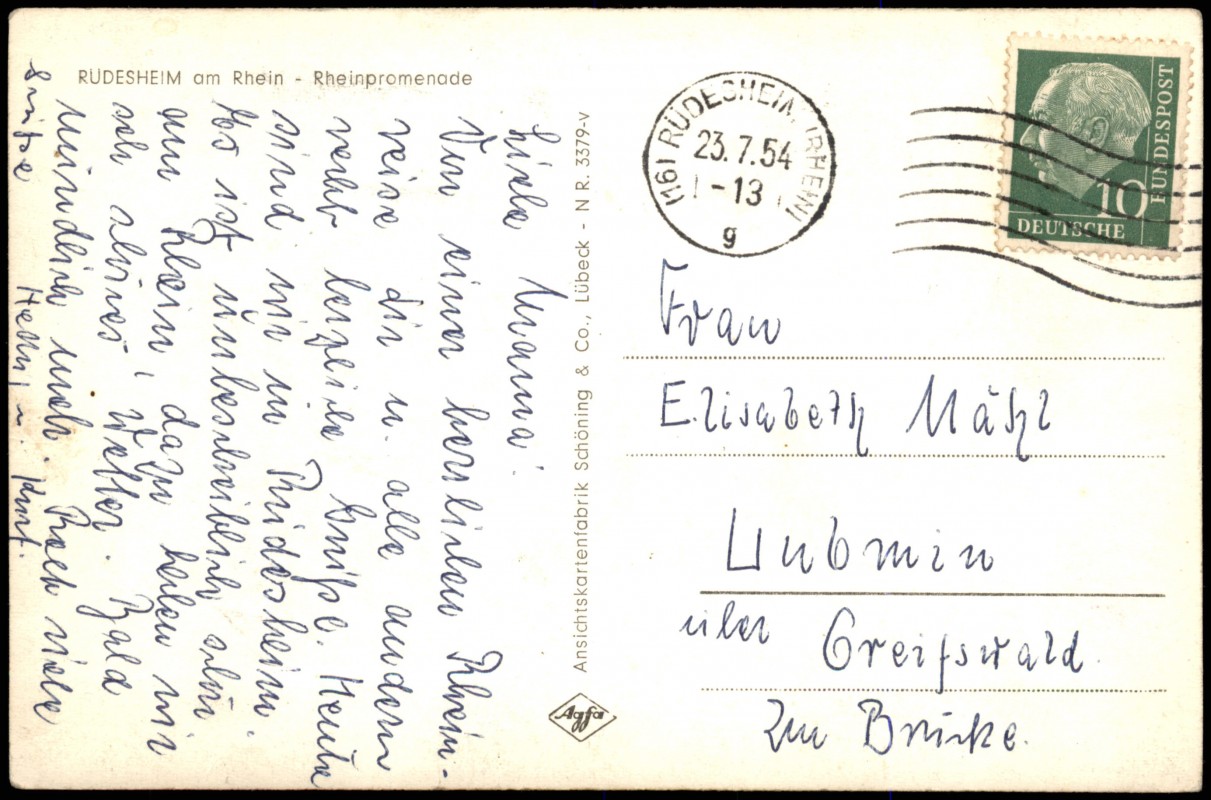 RÜDESHEIM am Rhein - Rheinpromenade
Liebe Mama!
Von einer herrlichen Rhein-
reise dir u. alle andern
recht herzliche Grüße. Heute
sind wir in Rüdesheim.
Es ist unbeschreiblich schön
am Rhein, dazu haben wir
sehr schönes Wetter. Bald
mündlich mehr. Noch viele
Grüße u. Kurt.
Ansichtskartenfabrik Schöning & Co., Lübeck - NR. 3379-v
Agfa
(16) RÜDESHEIM (RHEIN)
23.7.54
-13
g
10
DEUTSCHE BUNDESPOST
Frau
Elisabeth
Lubmin
über Greifswald
Zur Brücke.